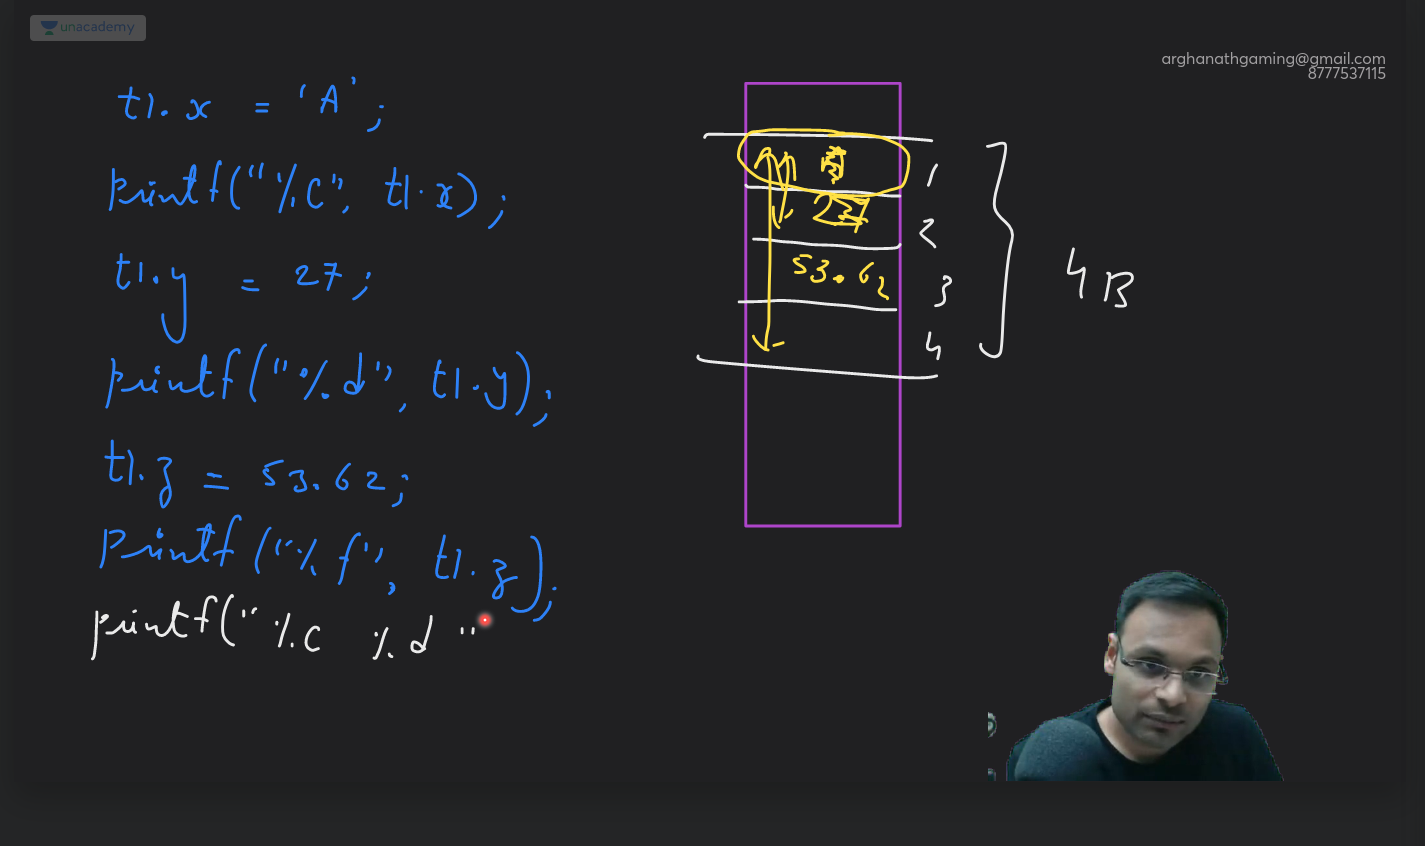 unacademy
arghanathgaming@gmail.com
8777537115
t1.x = 'A';
printf("%c", t1.x);
t1.y = 27;
printf("%d", t1.y);
t1.z = 53.62;
printf("%f", t1.z);
printf("%c %d"
1
2
53.62
3
4
4B